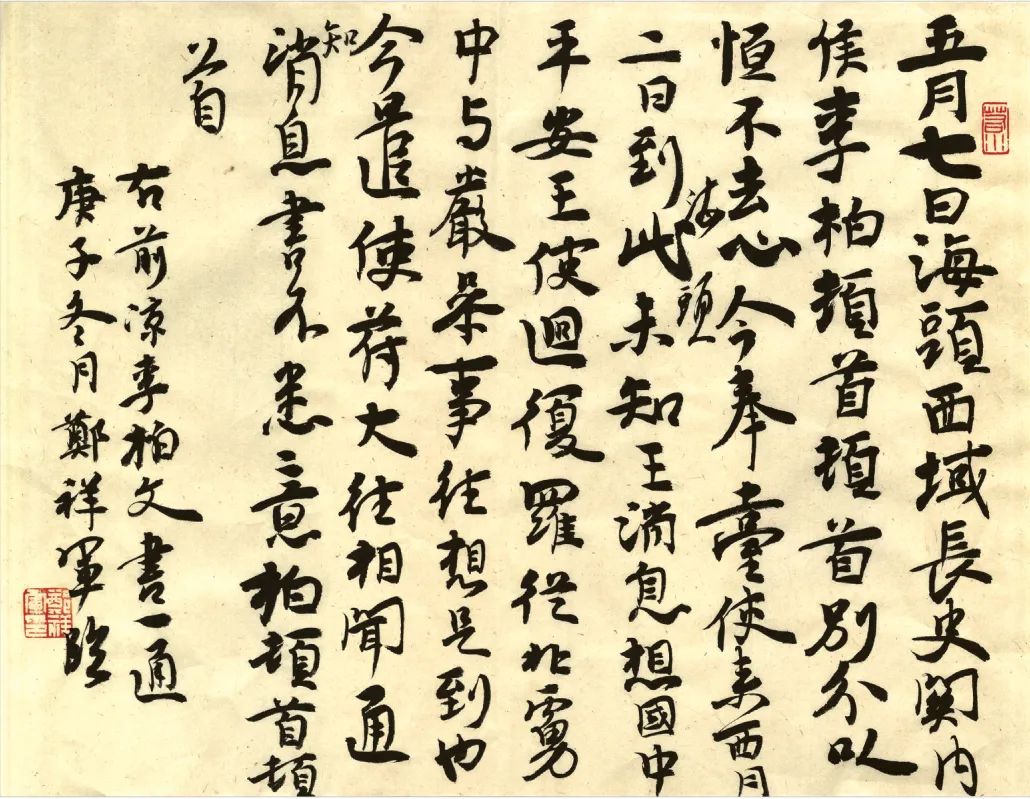 五月七日海頭西域長史關内
侯李柏頓首頓首別尒以
恒不去心今奉臺使来西月
海頭
二日到此未知王消息想國中
平安王使迴復羅從北虜
中与嚴參事往想是到也
今遣使苻大往相聞通
知
消息書不悉意柏頓首頓
首
右前凉李柏文書一通
庚子冬月鄭祥軍臨